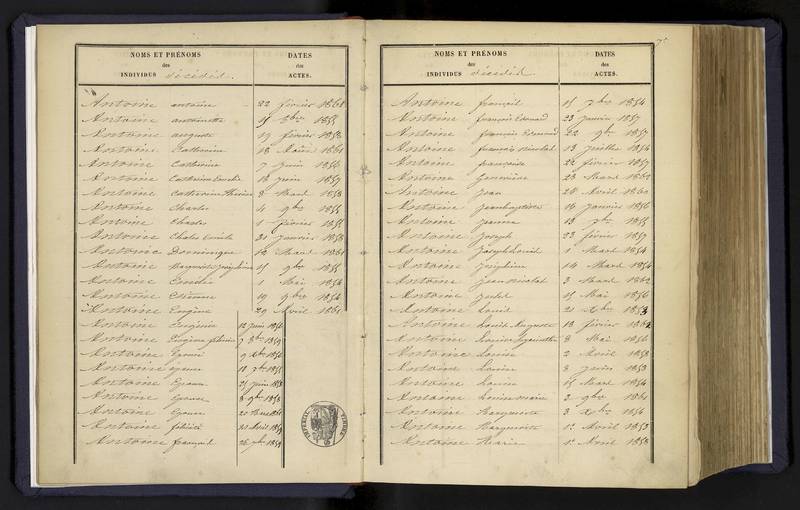 NOMS ET PRÉNOMS
des
INDIVIDUS décédés.
DATES
des
ACTES.
Antoine antoine 22 février 1861
Antoine antoinette 15 8bre 1855
Antoine auguste 19 février 1858
Antoine Catherine 18 Août 1861
Antoine Catherine 7 juin 1856
Antoine Catherine 12 juin 1857
Antoine Catherine Thérèse 8 Mars 1858
Antoine Charles 4 9bre 1855
Antoine Charles 1 février 1855
Antoine Charles Emile 31 janvier 1858
Antoine Dominique 12 Mars 1861
Antoine Marguerite Joséphine 15 9bre 1855
Antoine 1 Mai 1854
Antoine Etienne 19 9bre 1854
Antoine Eugène 29 Avril 1861
Antoine Eugénie 12 juin 1854
Antoine Eugénie félicie 7 8bre 1859
Antoine Epouse 9 Xbre 1854
Antoine épouse 18 7bre 1855
Antoine Epouse 25 juin 1858
Antoine Epouse 8 9bre 1858
Antoine Epouse 20 Mars 1861
Antoine félicité 20 Avril 1859
Antoine françois 26 7bre 1859
NOMS ET PRÉNOMS
des
INDIVIDUS décédés
DATES
des
ACTES.
Antoine françois 15 7bre 1854
Antoine françois Edouard 23 janvier 1857
Antoine françois Edouard 22 9bre 1857
Antoine françois Nicolas 13 juillet 1854
Antoine françoise 22 février 1857
Antoine Geneviève 23 Mars 1862
Antoine Jean 28 Avril 1860
Antoine Jean baptiste 16 janvier 1856
Antoine Jeanne 13 7bre 1855
Antoine Joseph 23 février 1857
Antoine Joseph Louis 1 Mars 1854
Antoine Joséphine 14 Mars 1854
Antoine Jean Nicolas 3 Mars 1862
Antoine Jules 15 Mai 1856
Antoine Louis 21 Xbre 1853
Antoine Louis Auguste 13 février 1862
Antoine Louise 8 Mai 1856
Antoine Louise 2 Avril 1858
Antoine Louise 8 juin 1853
Antoine Louise 15 Mars 1854
Antoine Louise marie 2 9bre 1861
Antoine Marguerite 3 Xbre 1856
Antoine Marguerite 12 Avril 1853
Antoine Marie 12 Avril 1858
IMPERIAL
TIMBRE